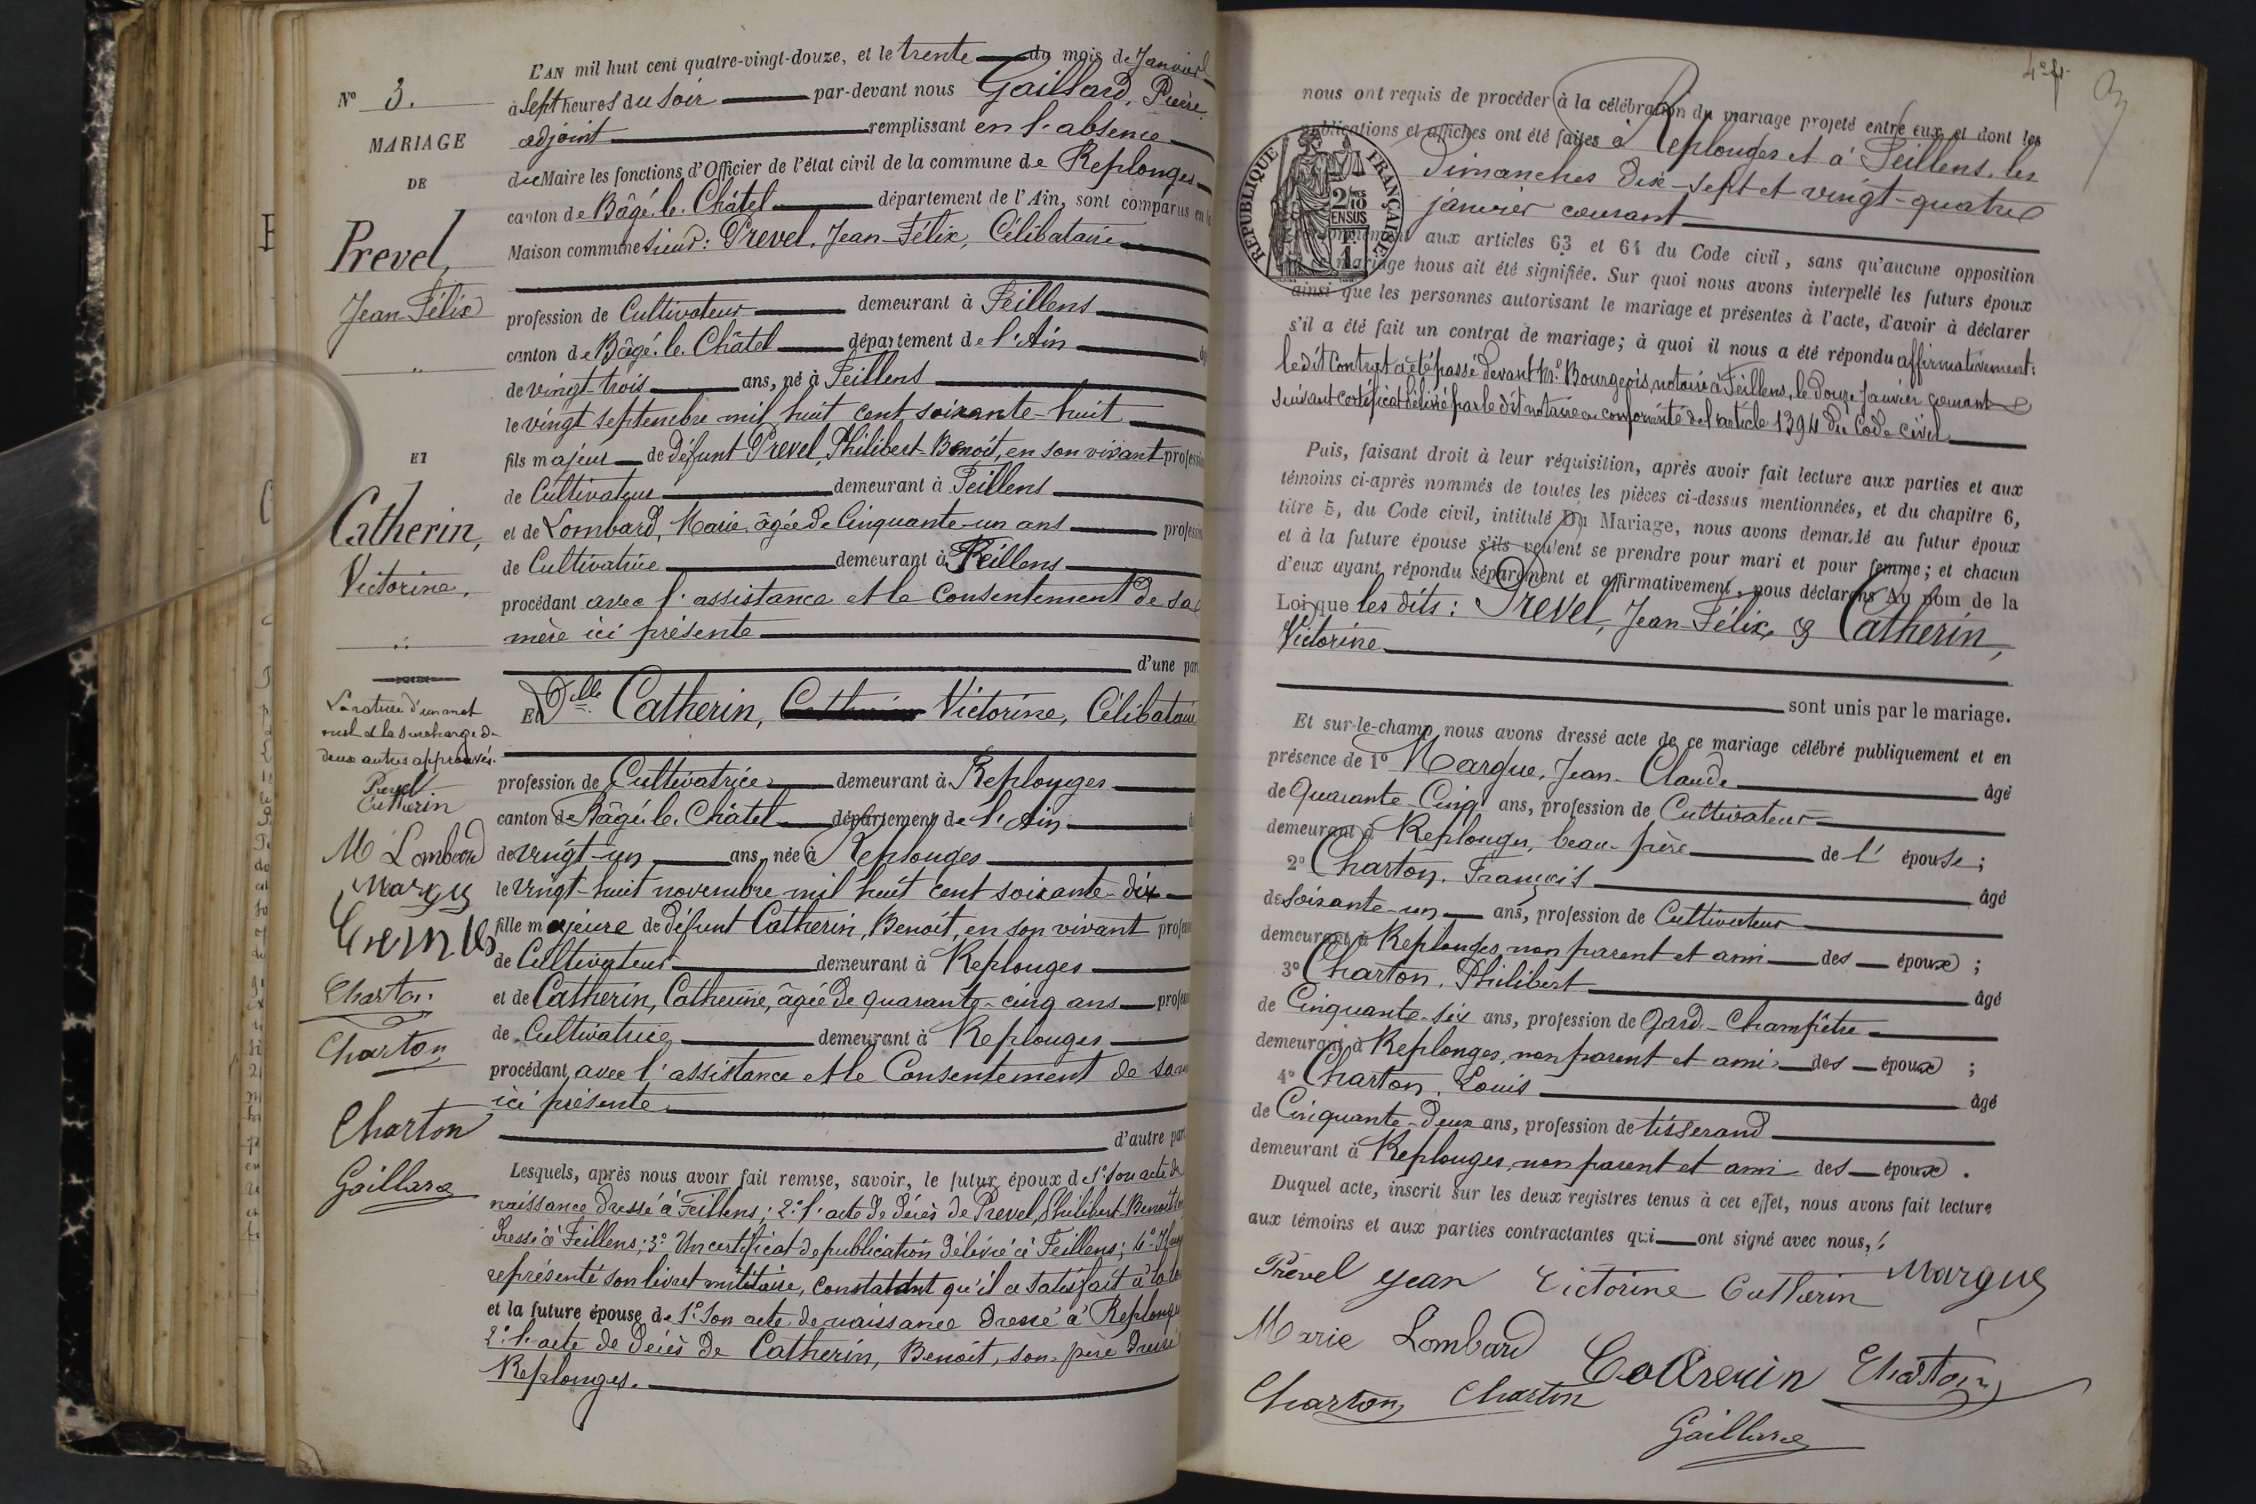 N° 3.
MARIAGE
DE
Prevel,
Jean-Félix
ET
Catherin,
Victorine,
La rature d'un mot
nul et la surcharge de
deux autres approuvés.
Prevel
Catherin
M Lombard
Margue
Charton
Charton
Charton
Gaillard
L'AN mil huit cent quatre-vingt-douze, et le trente du mois de Janvier
à sept heures du soir par-devant nous Gaillard, Pierre,
adjoint remplissant en l'absence
du Maire les fonctions d'Officier de l'état civil de la commune de Replonges
canton de Bâgé-le-Châtel département de l'Ain, sont comparus en la
Maison commune sieur: Prevel, Jean-Félix, Célibataire
profession de Cultivateur demeurant à Feillens
canton de Bâgé-le-Châtel département de l'Ain âgé
de vingt-trois ans, né à Feillens
le vingt septembre mil huit cent soixante-huit
fils majeur de défunt Prevel, Philibert-Benoît, en son vivant profession
de Cultivateur demeurant à Feillens
et de Lombard, Marie, âgée de Cinquante-un ans profession
de Cultivatrice demeurant à Feillens
procédant avec l'assistance et le Consentement de sa
mère ici présente
d'une part
Et Dlle Catherin, Victorine, Célibataire
profession de Cultivatrice demeurant à Replonges
canton de Bâgé-le-Châtel département de l'Ain
de vingt-un ans, née à Replonges
le vingt-huit novembre mil huit cent soixante-dix
fille majeure de défunt Catherin, Benoît, en son vivant profession
de Cultivateur demeurant à Replonges
et de Catherin, Catherine, âgée de quarante-cinq ans profession
de Cultivatrice demeurant à Replonges
procédant avec l'assistance et le Consentement de sa
ici présente
d'autre part
Lesquels, après nous avoir fait remise, savoir, le futur époux de 1° son acte de
naissance dressé à Feillens; 2° l'acte de décès de Prevel, Philibert-Benoît
dressé à Feillens; 3° Un certificat de publication délivré à Feillens; 4° Il nous
représenté son livret militaire, constatant qu'il a satisfait à la loi
et la future épouse de 1° Son acte de naissance dressé à Replonges
2° l'acte de décès de Catherin, Benoît, son père dressé
Replonges.
4e f.
3
nous ont requis de procéder à la célébration du mariage projeté entre eux et dont les
publications et affiches ont été faites à Replonges et à Feillens, les
dimanches dix-sept et vingt-quatre
janvier courant
RÉPUBLIQUE FRANÇAISE
2/10 EN SUS
conformément aux articles 63 et 64 du Code civil, sans qu'aucune opposition
mariage nous ait été signifiée. Sur quoi nous avons interpellé les futurs époux
ainsi que les personnes autorisant le mariage et présentes à l'acte, d'avoir à déclarer
s'il a été fait un contrat de mariage; à quoi il nous a été répondu affirmativement:
le dit Contrat a été passé devant Me Bourgeois, notaire à Feillens, le douze Janvier courant
suivant certificat délivré par le dit notaire en conformité de l'article 1394 du Code civil.
Puis, faisant droit à leur réquisition, après avoir fait lecture aux parties et aux
témoins ci-après nommés de toutes les pièces ci-dessus mentionnées, et du chapitre 6,
titre 5, du Code civil, intitulé Du Mariage, nous avons demandé au futur époux
et à la future épouse s'ils veulent se prendre pour mari et pour femme; et chacun
d'eux ayant répondu séparément et affirmativement, nous déclarons Au nom de la
Loi que les dits: Prevel, Jean-Félix, & Catherin,
Victorine
sont unis par le mariage.
Et sur-le-champ nous avons dressé acte de ce mariage célébré publiquement et en
présence de 1° Margue, Jean-Claude âgé
de Quarante-Cinq ans, profession de Cultivateur
demeurant à Replonges, beau-père de l'épouse;
2° Charton, François âgé
de soixante-un ans, profession de Cultivateur
demeurant à Replonges, non parent et ami des époux;
3° Charton, Philibert âgé
de Cinquante-six ans, profession de Gard-Champêtre
demeurant à Replonges, non parent et ami des époux;
4° Charton, Louis âgé
de Cinquante-deux ans, profession de tisserand
demeurant à Replonges, non parent et ami des époux.
Duquel acte, inscrit sur les deux registres tenus à cet effet, nous avons fait lecture
aux témoins et aux parties contractantes qui ont signé avec nous,
Prevel Jean Victorine Catherin Margue
Marie Lombard Catherin Charton
Charton Charton
Gaillard